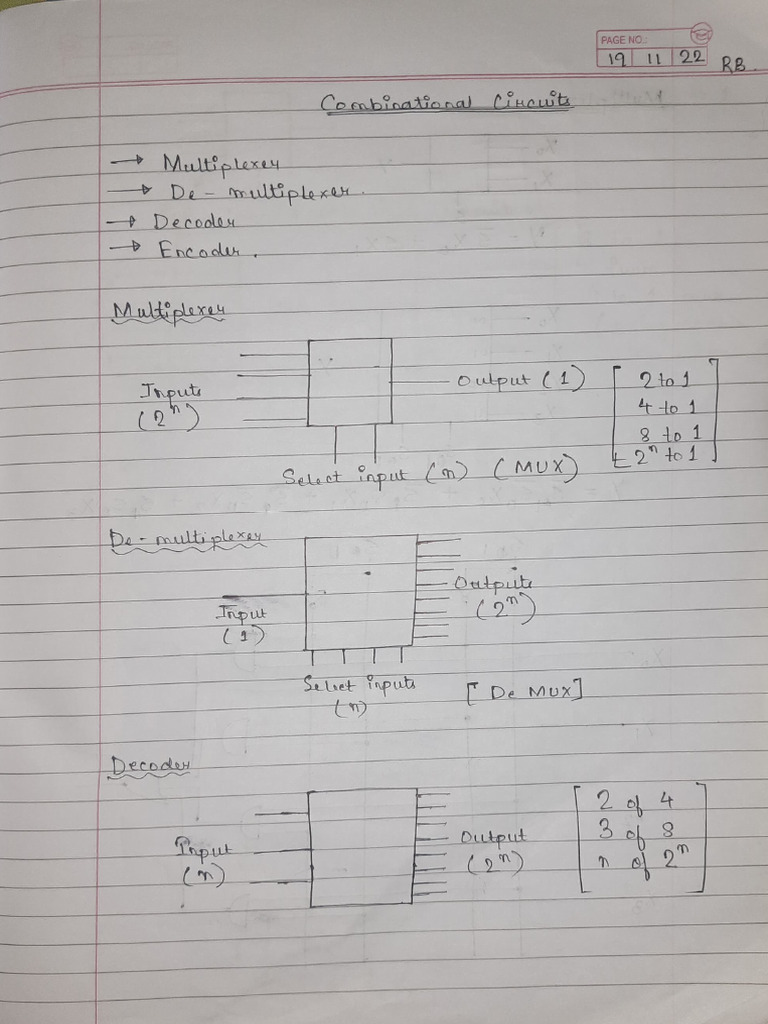 PAGE NO.:
19 11 22
RB
Combinational Circuits
→ Multiplexer
→ De-multiplexer.
→ Decoder
→ Encoder.
Multiplexer
Inputs
(2ⁿ)
Output (1)
Select input (n) (MUX)
2 to 1
4 to 1
8 to 1
2ⁿ to 1
De-multiplexer
Input
(1)
Outputs
(2ⁿ)
Select inputs
(n)
[De MUX]
Decoder
Input
(n)
Output
(2ⁿ)
2 of 4
3 of 8
n of 2ⁿ